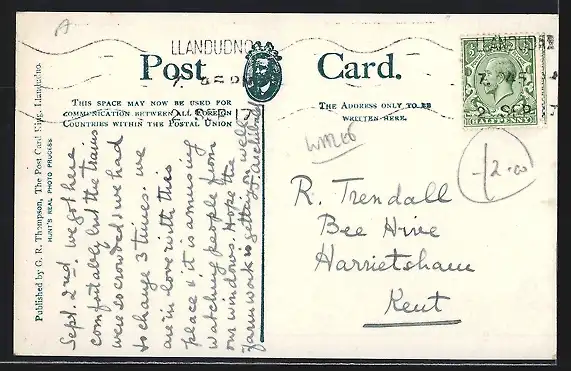 A
LLANDUDNO
Post Card.
THIS SPACE MAY NOW BE USED FOR
COMMUNICATION BETWEEN ALL FOREIGN
COUNTRIES WITHIN THE POSTAL UNION
THE ADDRESS ONLY TO BE
WRITTEN HERE.
LLANDUD
7. PM
2 SEP
HALFPENNY
WALES
12.00
R. Trendall
Bee Hive
Harrietsham
Kent
Sept. 2nd. we got here
comfortably but the trains
were so crowded & we had
to change 3 times. we
are in love with this
place & it is amusing
watching people from
our windows. Hope the
farm work is getting on well
Archibald
Published by G. R. Thompson, The Post Card King, Llandudno.
HUNT'S REAL PHOTO PROCESS